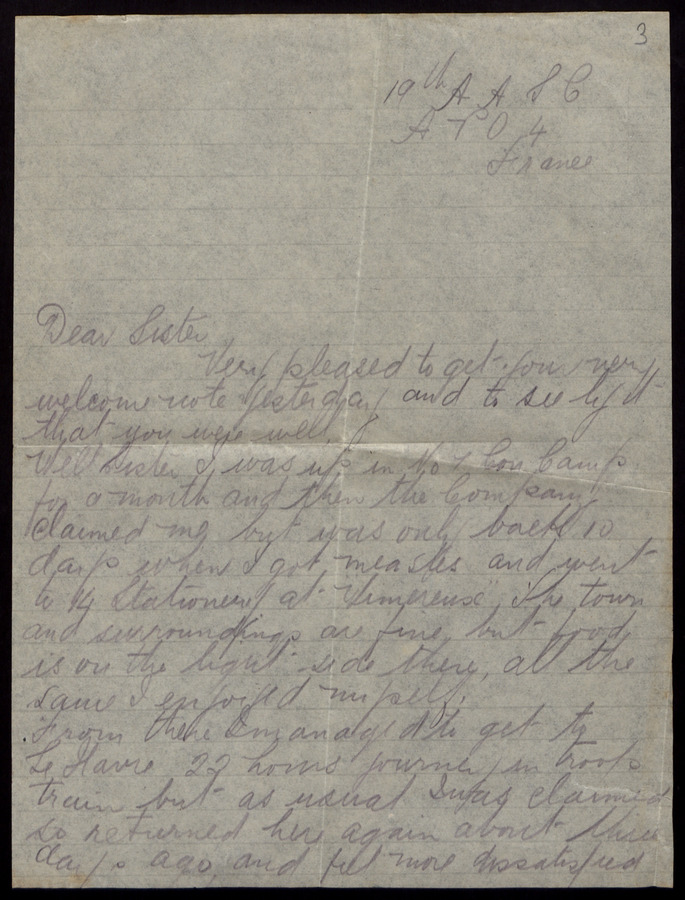 3
19th A A S C
A P O 4
France
Dear Sister
Very pleased to get your very
welcome note yesterday and to see by it
that you were well.
Well Sister I was up in No 7 Con Camp
for a month and then the Company
claimed me but was only back 10
days when I got measles and went
to 14 Stationery at "Wimereux" The town
and surroundings are fine, but food
is on the light side there, all the
same I enjoyed myself.
From there I managed to get to
Le Havre 22 hours journey in troop
train but as usual I was claimed
so returned here again about three
days ago, and feel more dissatisfied